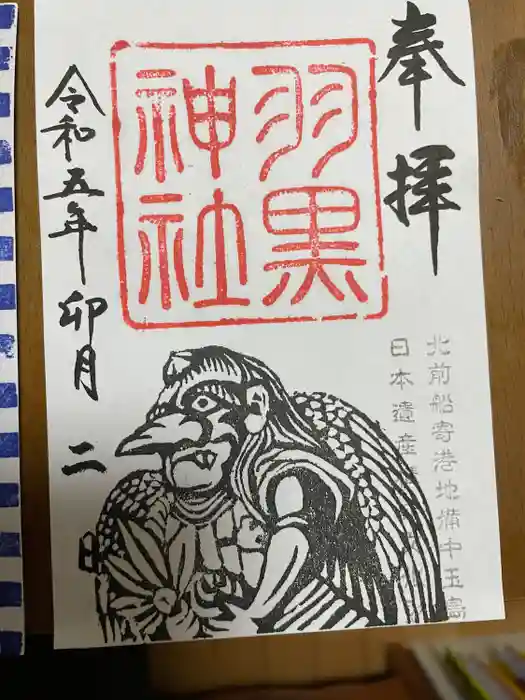 奉拝
羽黒
神社
北前船寄港地備中玉島
日本遺産
令和五年卯月二日